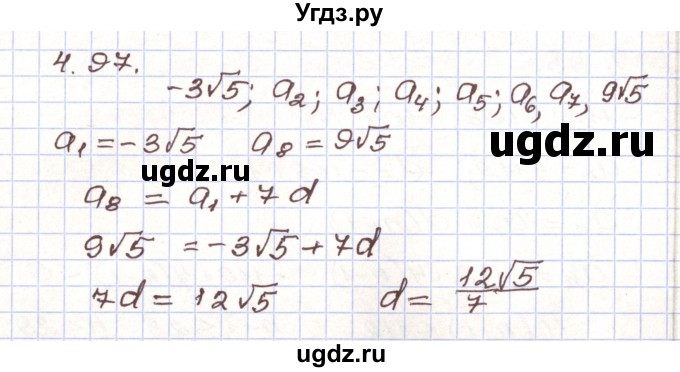 Угдз.ру
4.97.
-3√5; a₂; a₃; a₄; a₅; a₆, a₇, 9√5
a₁ = -3√5 a₈ = 9√5
ugdz.ru
ugdz.ru
ugdz.ru
a₈ = a₁ + 7d
9√5 = -3√5 + 7d
7d = 12√5 d = 12√5/7
ugdz.ru
ugdz.ru